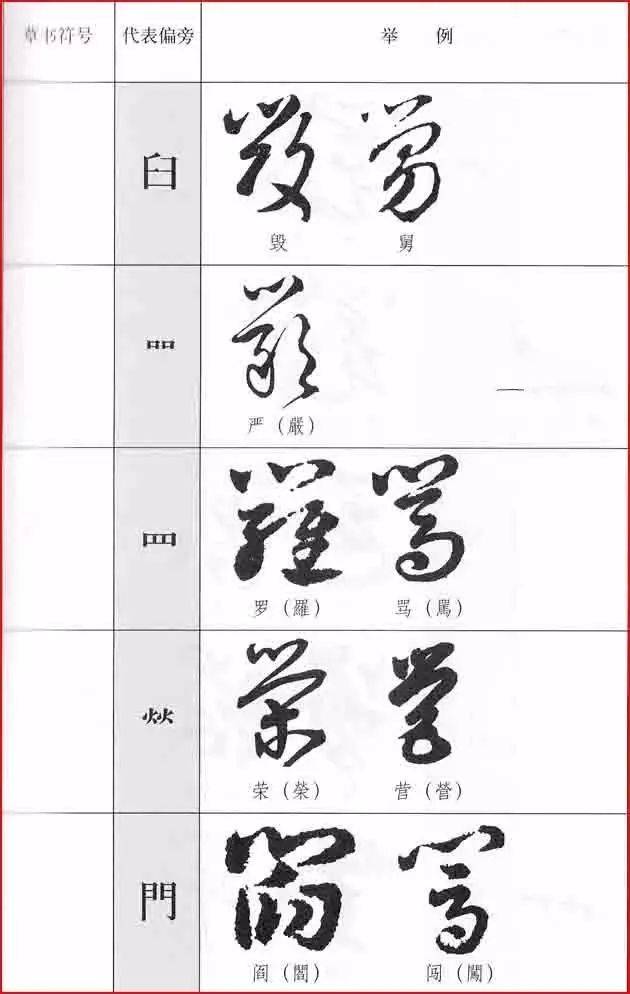 草书符号 代表偏旁 举 例
臼
毁 舅
吅
严（嚴）
罒
罗（羅） 骂（罵）
炏
荣（榮） 营（營）
門
阎（閻） 闯（闖）